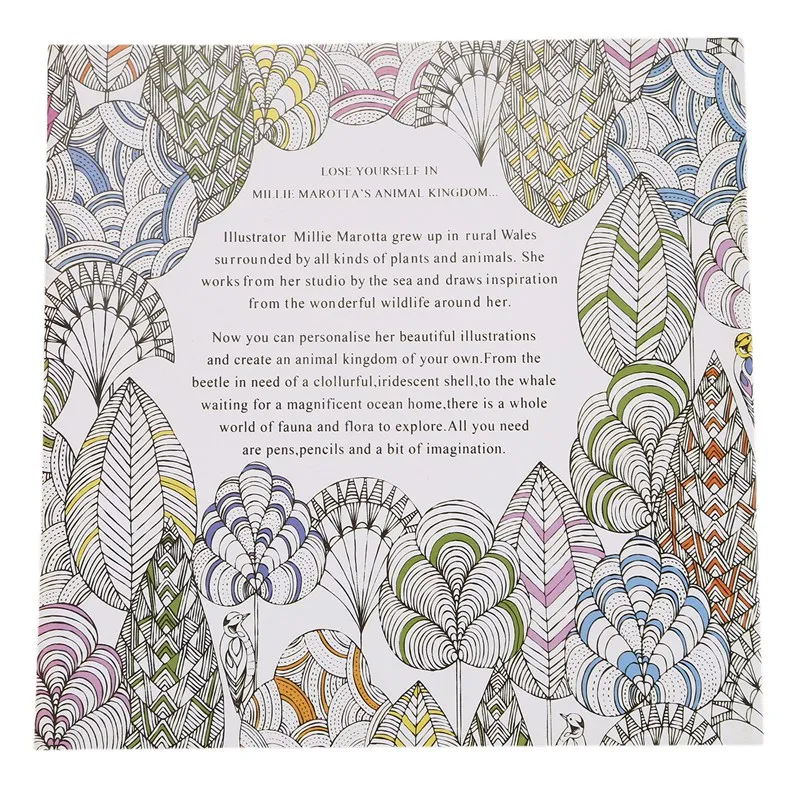 LOSE YOURSELF IN
MILLIE MAROTTA'S ANIMAL KINGDOM...
Illustrator Millie Marotta grew up in rural Wales
surrounded by all kinds of plants and animals. She
works from her studio by the sea and draws inspiration
from the wonderful wildlife around her.
Now you can personalise her beautiful illustrations
and create an animal kingdom of your own.From the
beetle in need of a clollurful,iridescent shell,to the whale
waiting for a magnificent ocean home,there is a whole
world of fauna and flora to explore.All you need
are pens,pencils and a bit of imagination.